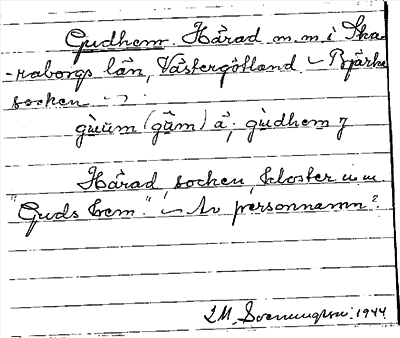 Gudhem. Härad m.m. i Ska-
-raborgs län, Västergötland – Bjärke
socken
gùum (gäm) å; gùdhem
Härad, socken, kloster m.m.
"Guds hem." – Av personnamn?
Sveningson 1944